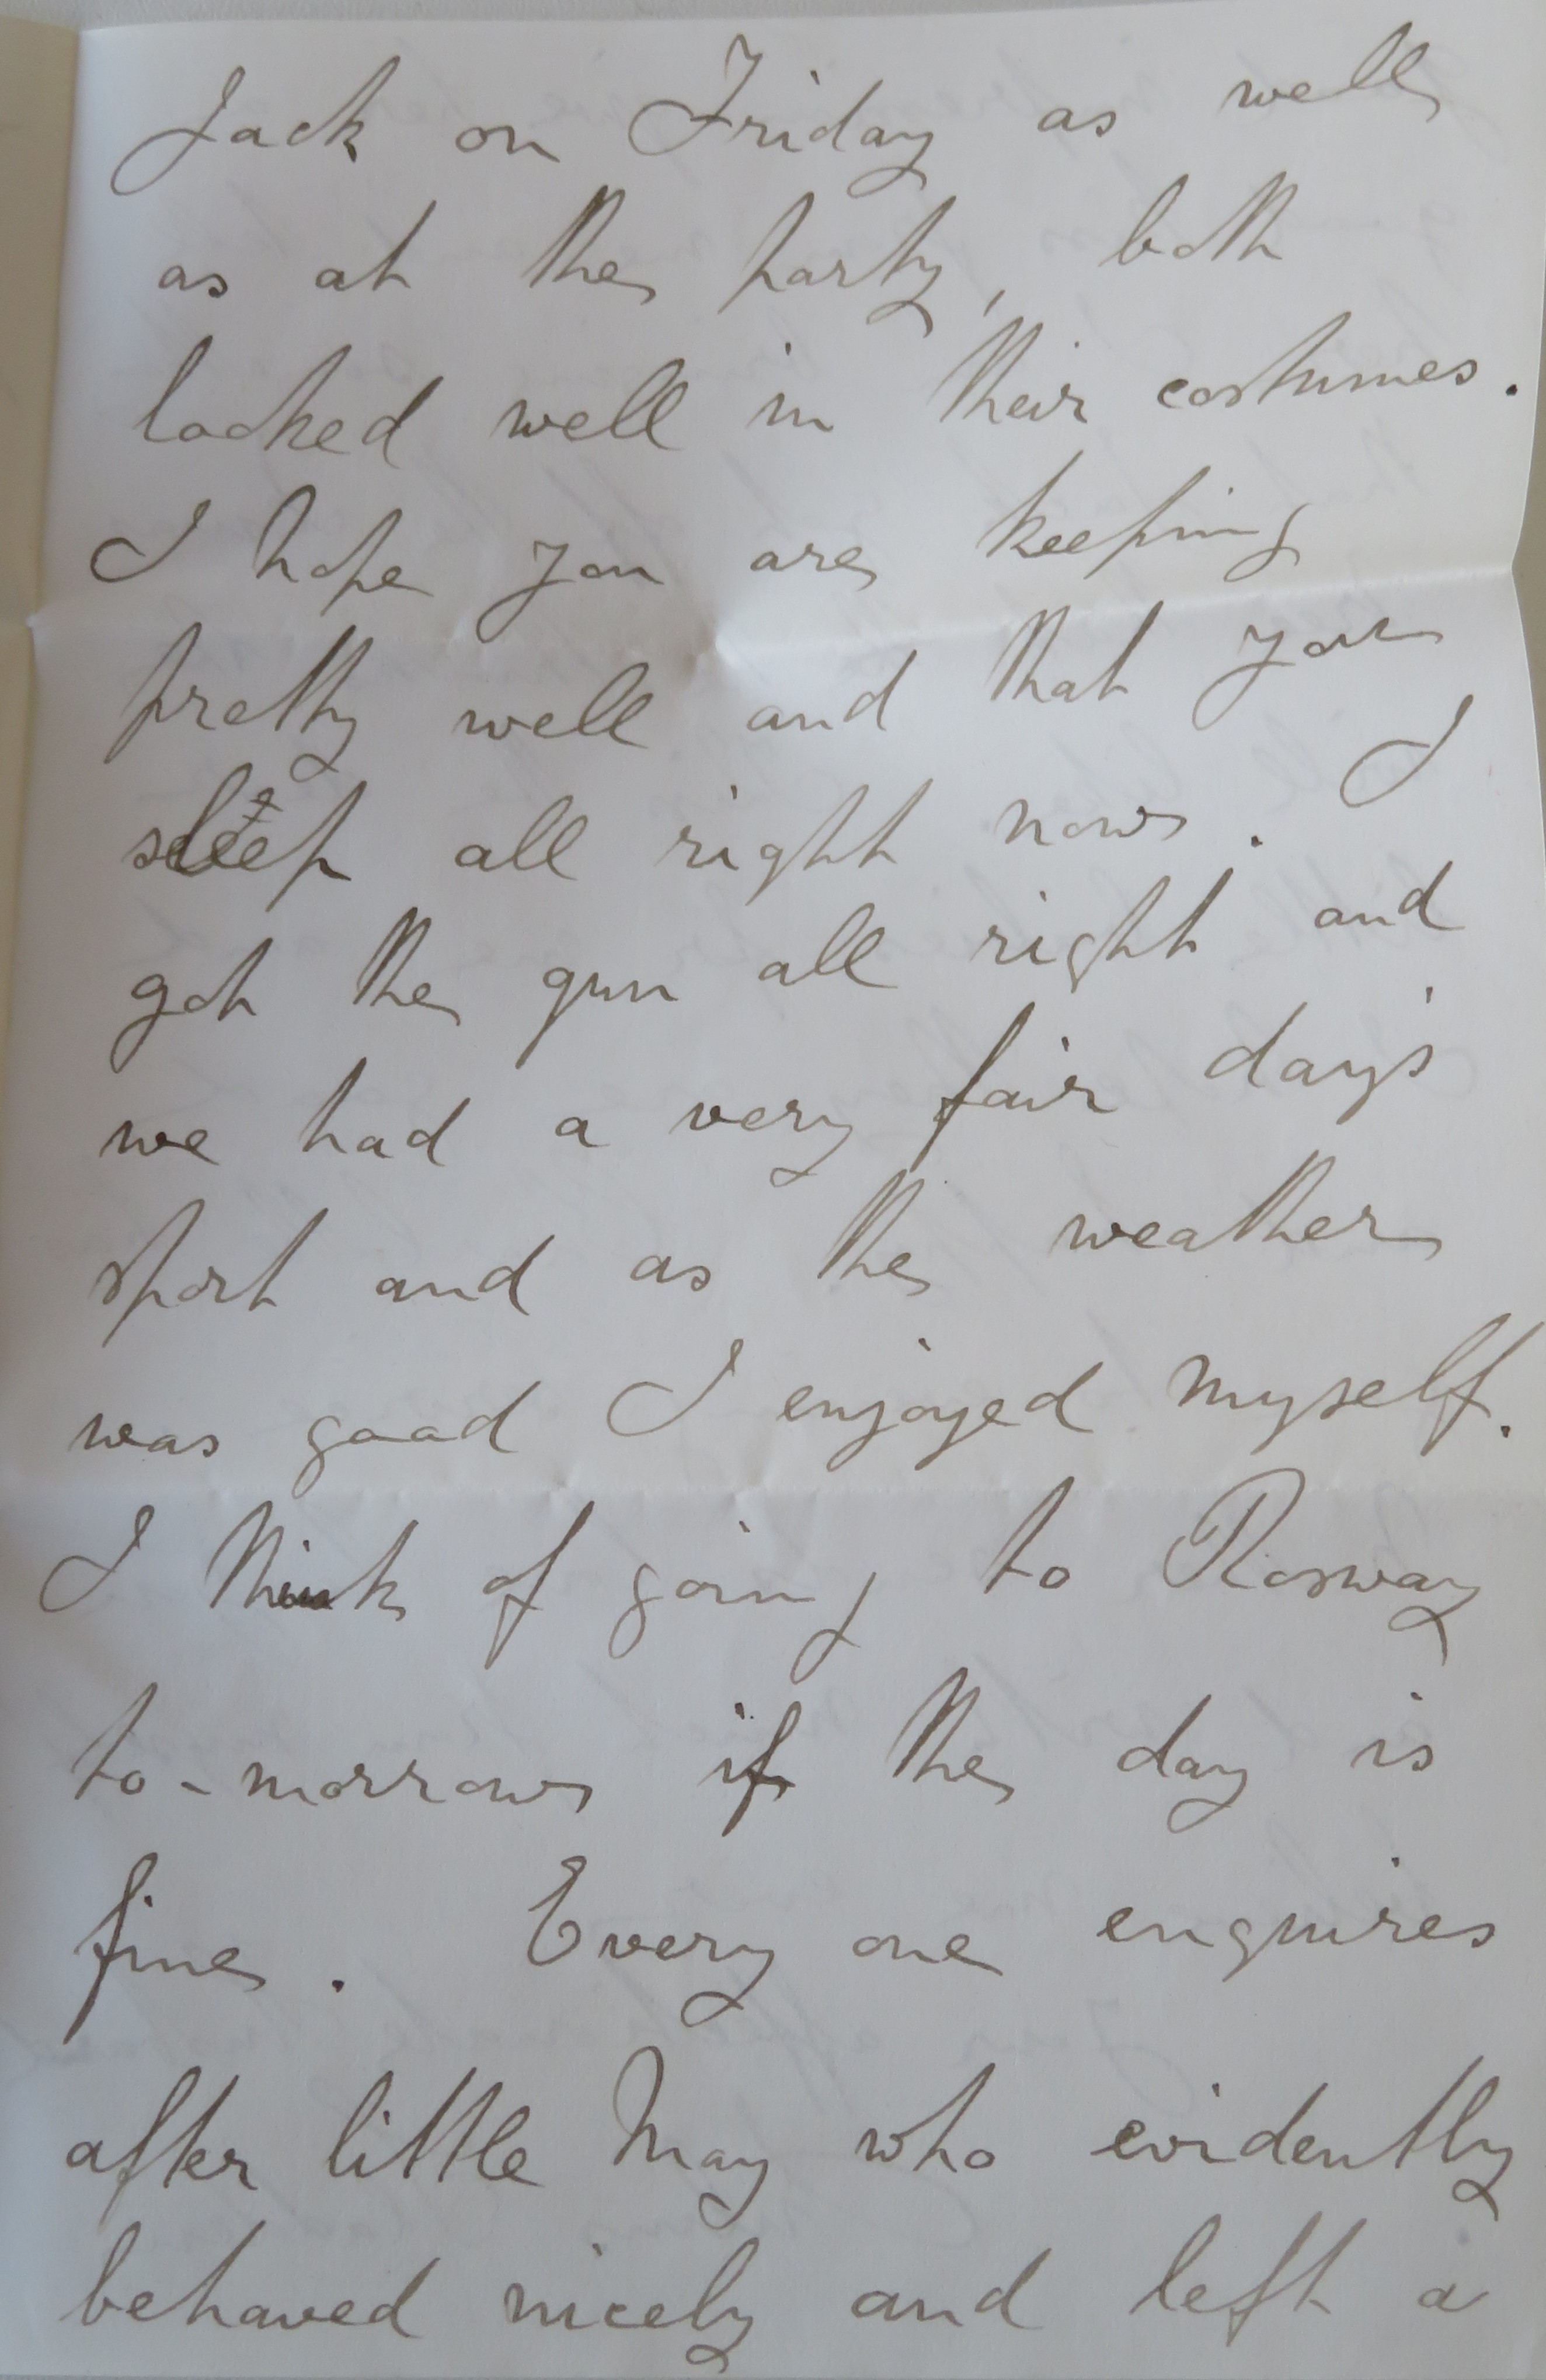 Jack on Friday as well
as at the party, both
looked well in their costumes.
I hope you are keeping
pretty well and that you
sleep all right now. I
got the gun all right and
we had a very fair day's
sport and as the weather
was good I enjoyed myself.
I think of going to Rosway
to-morrow if the day is
fine. Every one enquires
after little May who evidently
behaved nicely and left a